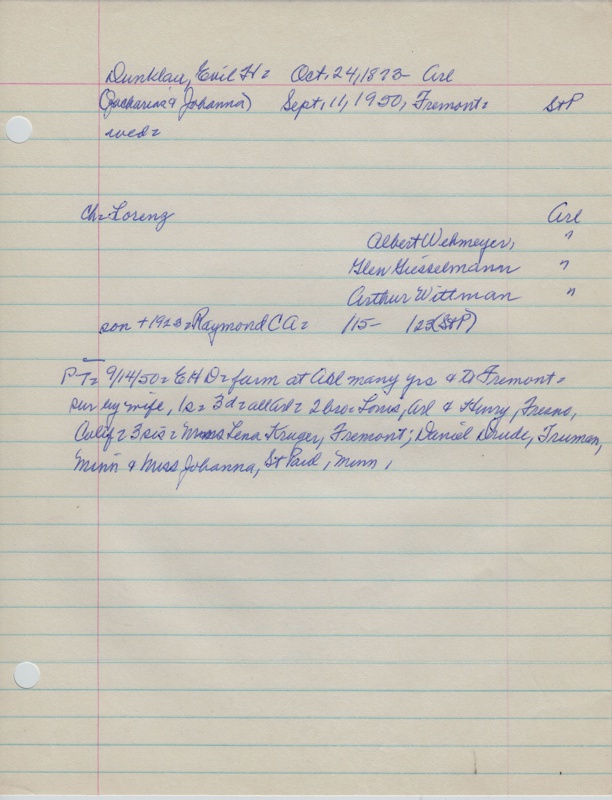 Dunklau, Emil H= Oct. 24, 1873- Arl
(Zacharias & Johanna) Sept. 11, 1950, Fremont= StP
wed=
Ch= Lorenz Arl
Albert Wehmeyer, "
Glen Giesselmann "
Arthur Wittman "
son + 1923= Raymond C A= 1/15- 1/23(StP)
PT= 9/14/50= E H D= farm at Arl many yrs & to Fremont=
sur by wife, 1s= 3d= all Arl= 2 bro= Louis, Arl & Henry, Fresno,
Calif= 3 sis= Mmes Lena Kruger, Fremont; Daniel Drude, Truman,
Minn & Miss Johanna, St Paul, Minn,